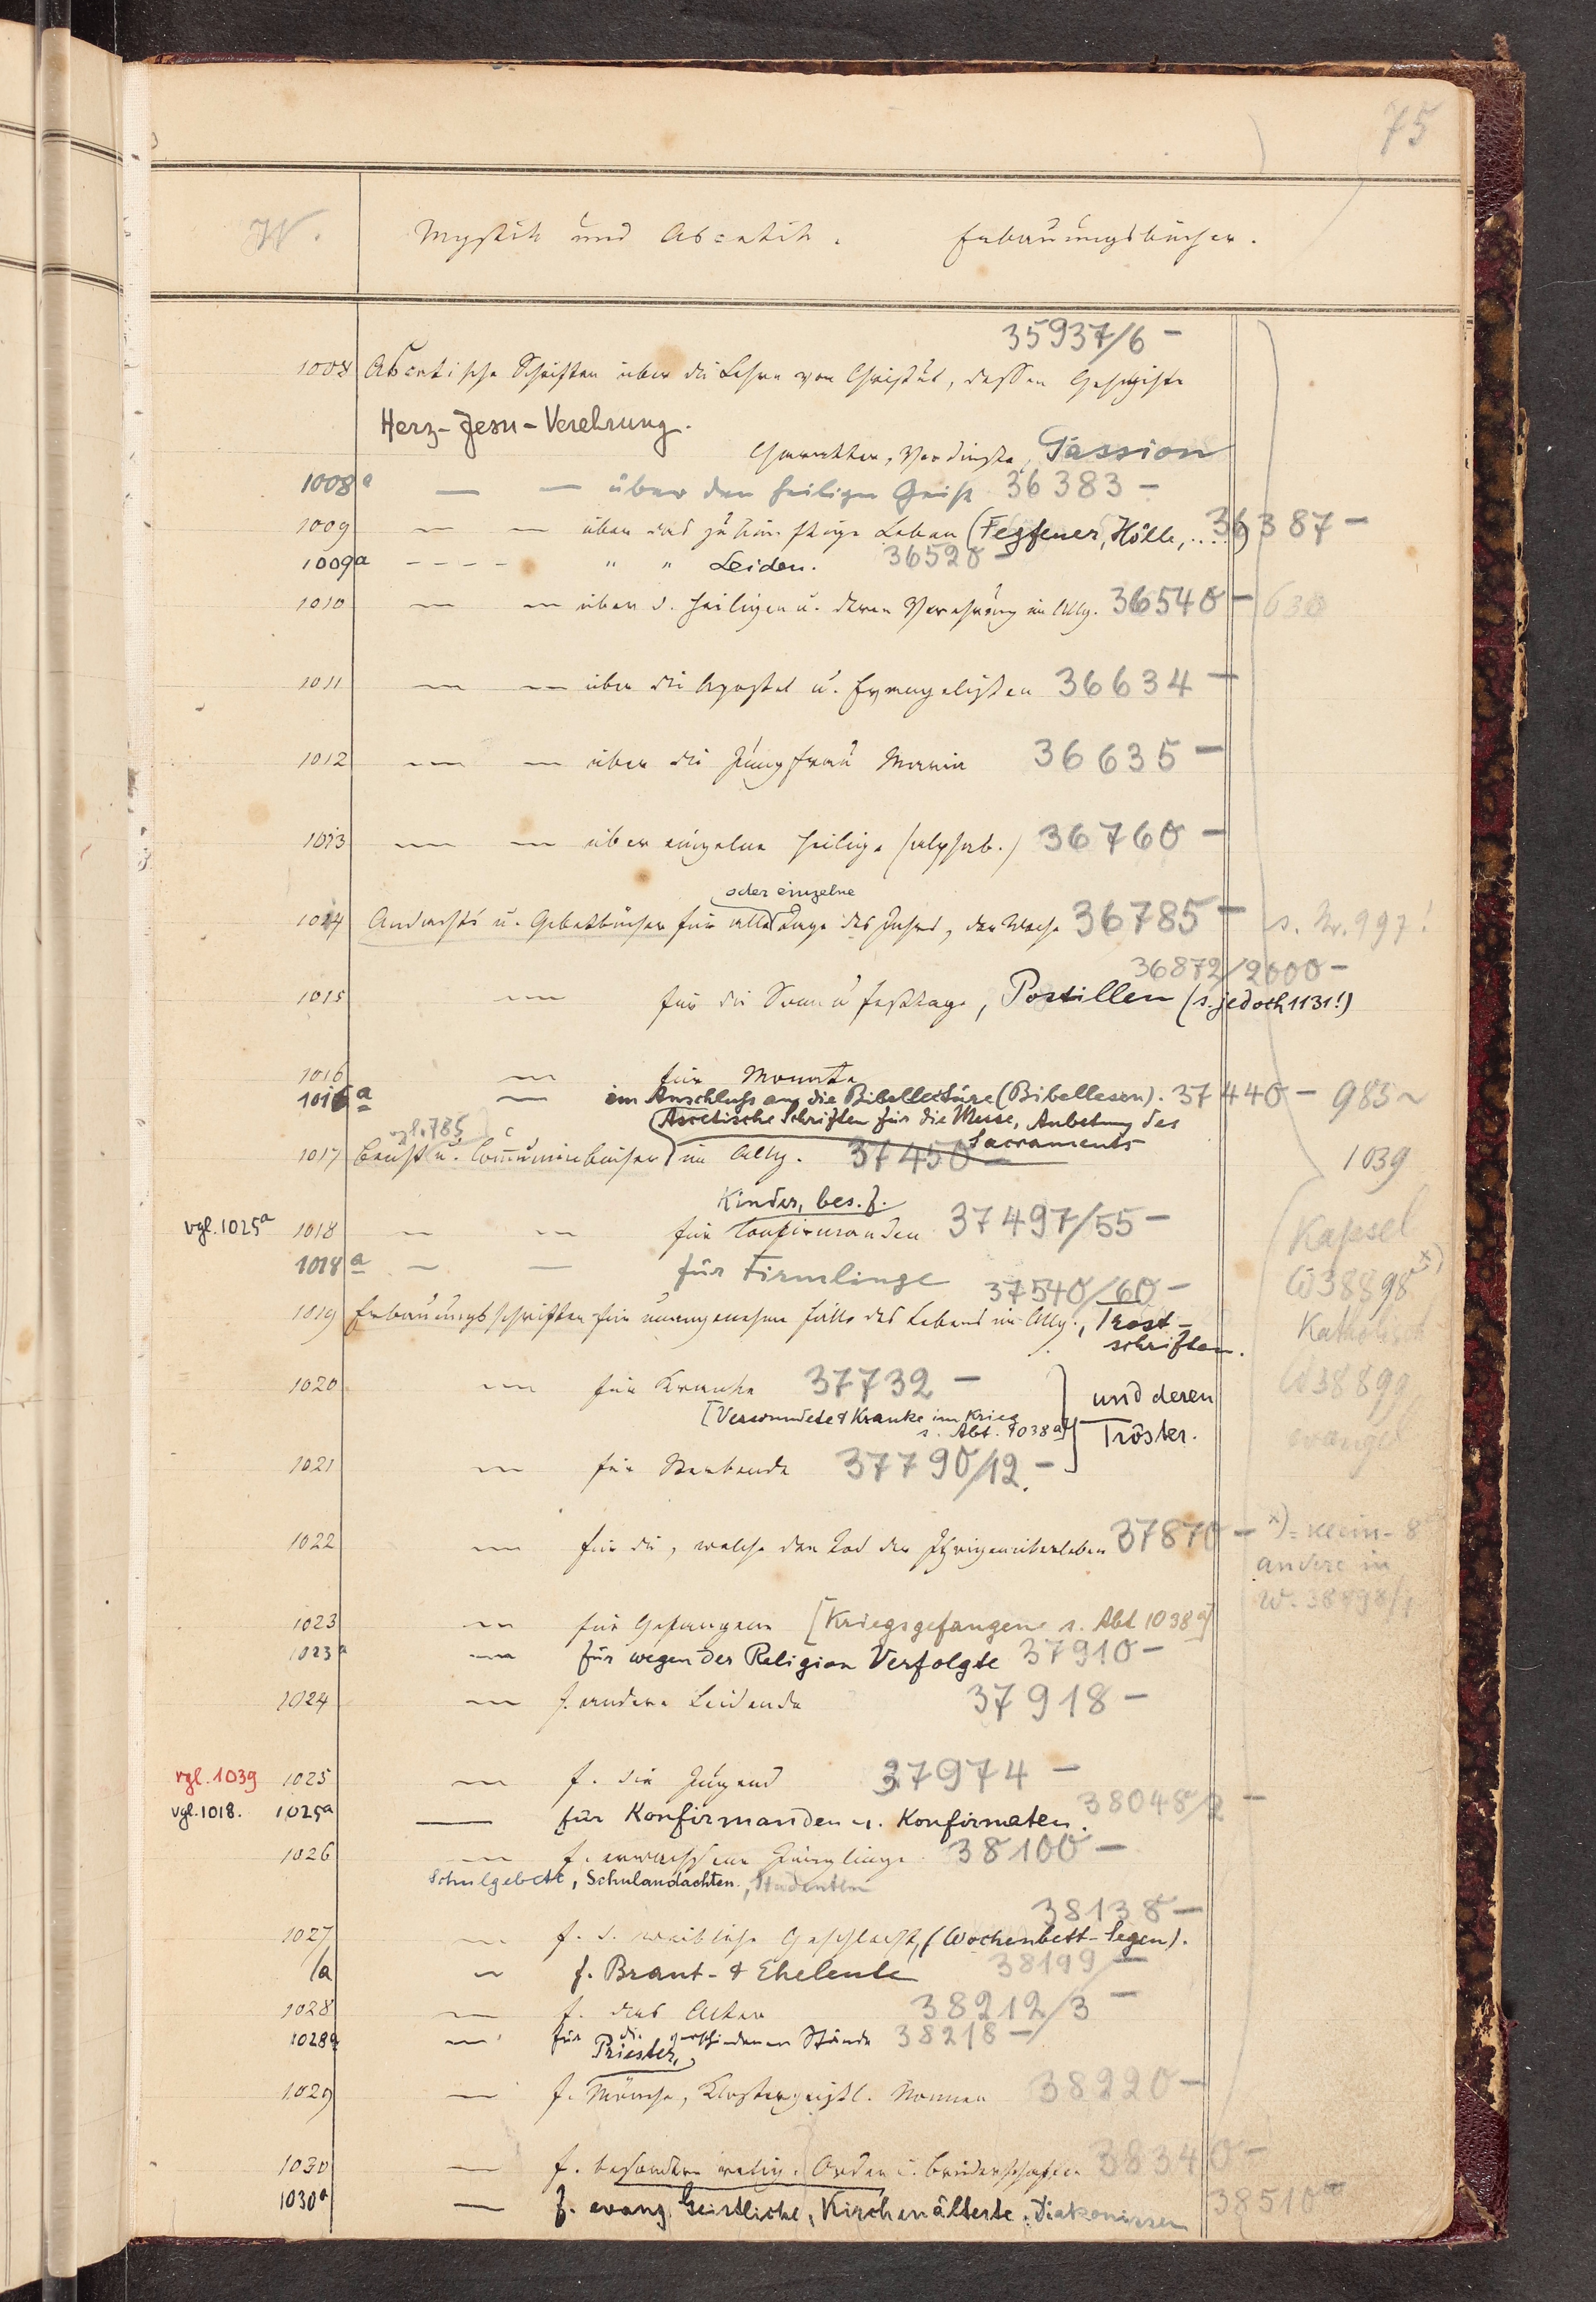 75
W.
Mystik und Ascetik. Erbauungsbücher.
35937/6 -
1008 Ascetische Schriften über die Lehre von Christus, dessen Geschichte
Herz-Jesu-Verehrung.
Charakter, Verdienste, Passion
1008a — — über den heiligen Geist 36383 -
1009 — — über das zukünftige Leben (Fegfeuer, Hölle, ....) 36387 -
1009a - - - - " " Leiden. 36520 -
1010 — — über d. Heiligen u. deren Verehrung im Allg. 36540 - 630
1011 — — über die Apostel u. Evangelisten 36634 -
1012 — — über die Jungfrau Maria 36635 -
1013 — — über einzelne Heilige (alphab.) 36760 -
oder einzelne
1014 Andachts u. Gebetbücher für alle Tage des Jahres, der Woche 36785 - s. Nr. 997!
36872/2000 -
1015 — für die Sonn u Festtage, Postillen (s. jedoch 1131!)
1016 — für Monate
1016a — im Anschluss an die Bibellectüre (Bibellesen). 37440 - 985 ~
Ascetische Schriften für die Messe, Anbetung des
vgl. 785 Sacraments
1017 Beicht u. Communionbücher im Allg. 37450 - 1039
Kinder, bes. f.
vgl. 1025a 1018 — — für Confirmanden 37497/55 - Kapsel
1018a — — für Firmlinge W38898 x)
37540/60 -
1019 Erbauungsschriften für unangenehme Fälle des Lebens im Allg., Trost- Katholisch
schriften.
1020 — für Kranke 37732 - und deren W38899
[Verwundete & Kranke im Krieg
s. Abt. 1038a] Tröster. evangel
1021 — für Sterbende 37790/12. -
1022 — für die, welche den Tod der Ihrigen überleben 37870 - x) = klein-8°
andere in
W. 38898/1
1023 — für Gefangene [Kriegsgefangene s. Abt 1038a]
1023a — für wegen der Religion Verfolgte 37910 -
1024 — f. andere Leidende 37918 -
vgl. 1039 1025 — f. die Jugend 37974 -
vgl. 1018. 1025a — für Konfirmanden u. Konfirmaten. 38048/2 -
1026 — f. erwachsene Jünglinge 38100 -
Schulgebete, Schulandachten, Studenten
38138 -
1027 — f. d. weibliche Geschlecht, (Wochenbett-Segen).
/a — f. Braut- & Eheleute 38199 -
1028 — f. das Alter 38212/3 -
1028a — für die verschiedenen Stände 38218 -
Priester,
1029 — f. Mönche, Klostergeistl. Nonnen 38220 -
1030 — f. besondere relig. Orden u. Bruderschaften 38340 -
1030a — f. evang. Geistliche, Kirchenälteste. Diakonissen 38510 -